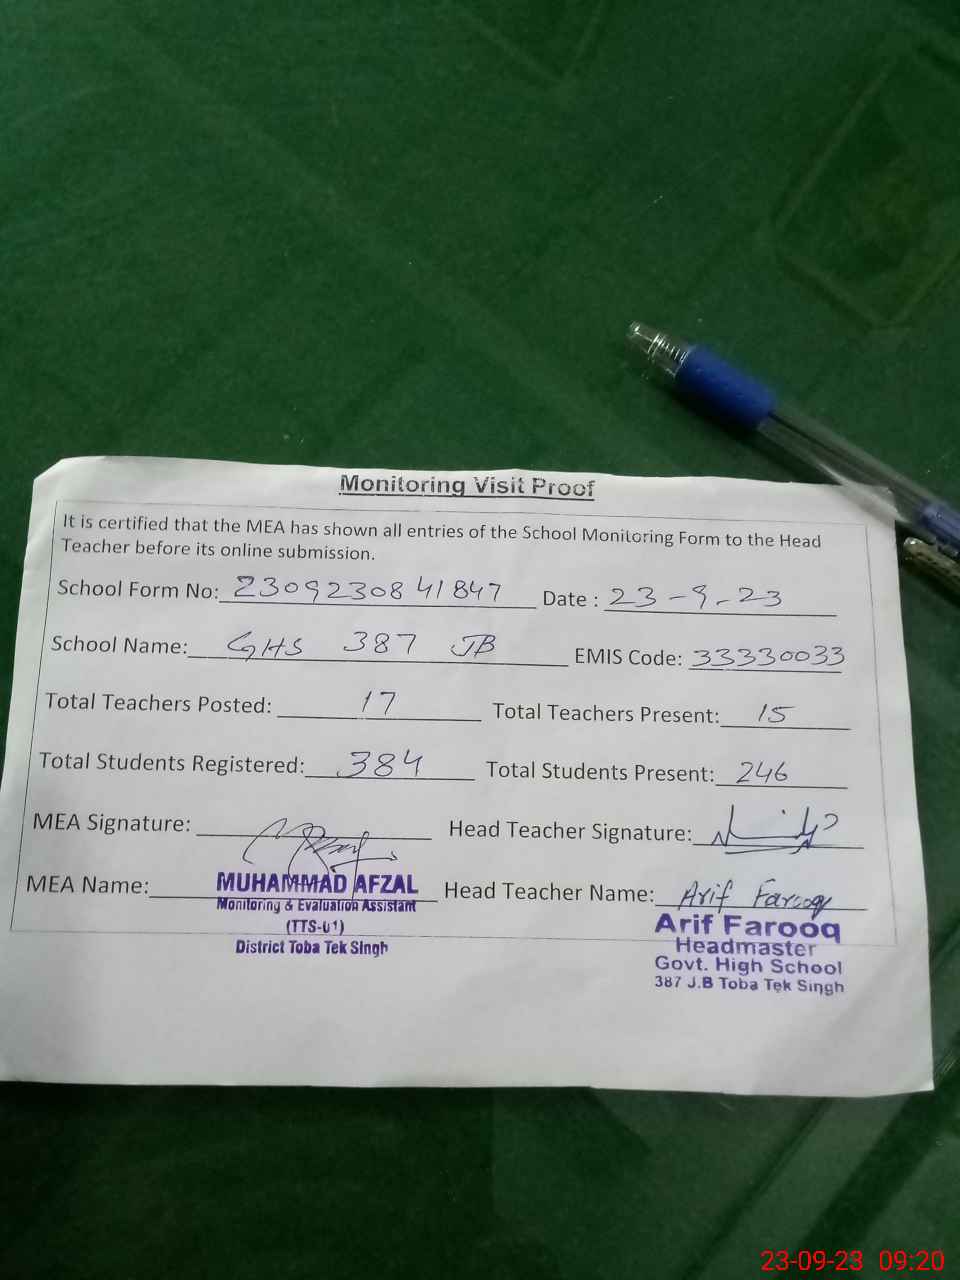 Monitoring Visit Proof
It is certified that the MEA has shown all entries of the School Monitoring Form to the Head
Teacher before its online submission.
School Form No: 230923084 1847 Date : 23-9-23
School Name: GHS 387 JB EMIS Code: 33330033
Total Teachers Posted: 17 Total Teachers Present: 15
Total Students Registered: 384 Total Students Present: 246
MEA Signature: Head Teacher Signature:
MEA Name: MUHAMMAD AFZAL Head Teacher Name: Arif Farooq
Monitoring & Evaluation Assistant
(TTS-01)
District Toba Tek Singh
Arif Farooq
Headmaster
Govt. High School
387 J.B Toba Tek Singh
23-09-23 09:20